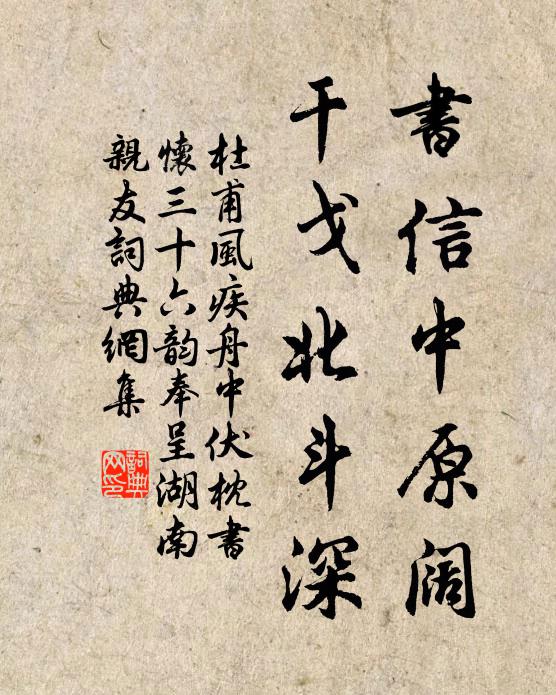 書信中原阔
干戈北斗深
杜甫風疾舟中伏枕書
懷三十六韵奉呈湖南
親友詞典網集
詞典
网印